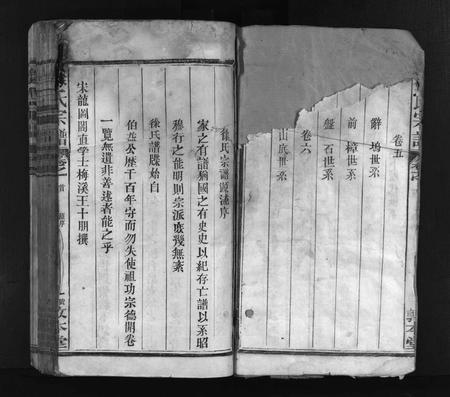 卷五
辭塢世系
前樟世系
盤石世系
卷六
山底世系
徐氏宗譜源流序
家之有譜猶國之有史史以紀存亡譜以系昭
穆行之能明則宗派庶幾無紊
徐氏譜牒始自
伯益公歷千百年守而勿失使祖功宗德開卷
一覽無遺非善述者能之乎
宋龍圖閣直學士梅溪王十朋撰
氏宗譜
敦本堂